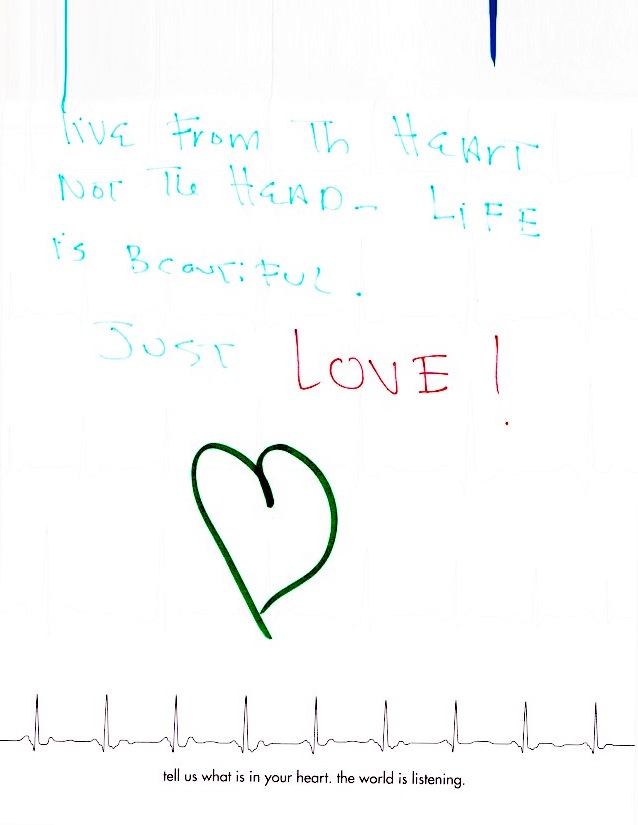 live From Th HEART
Not The HEAD - LiFE
is BeautiFul.
Just LOVE!
tell us what is in your heart. the world is listening.